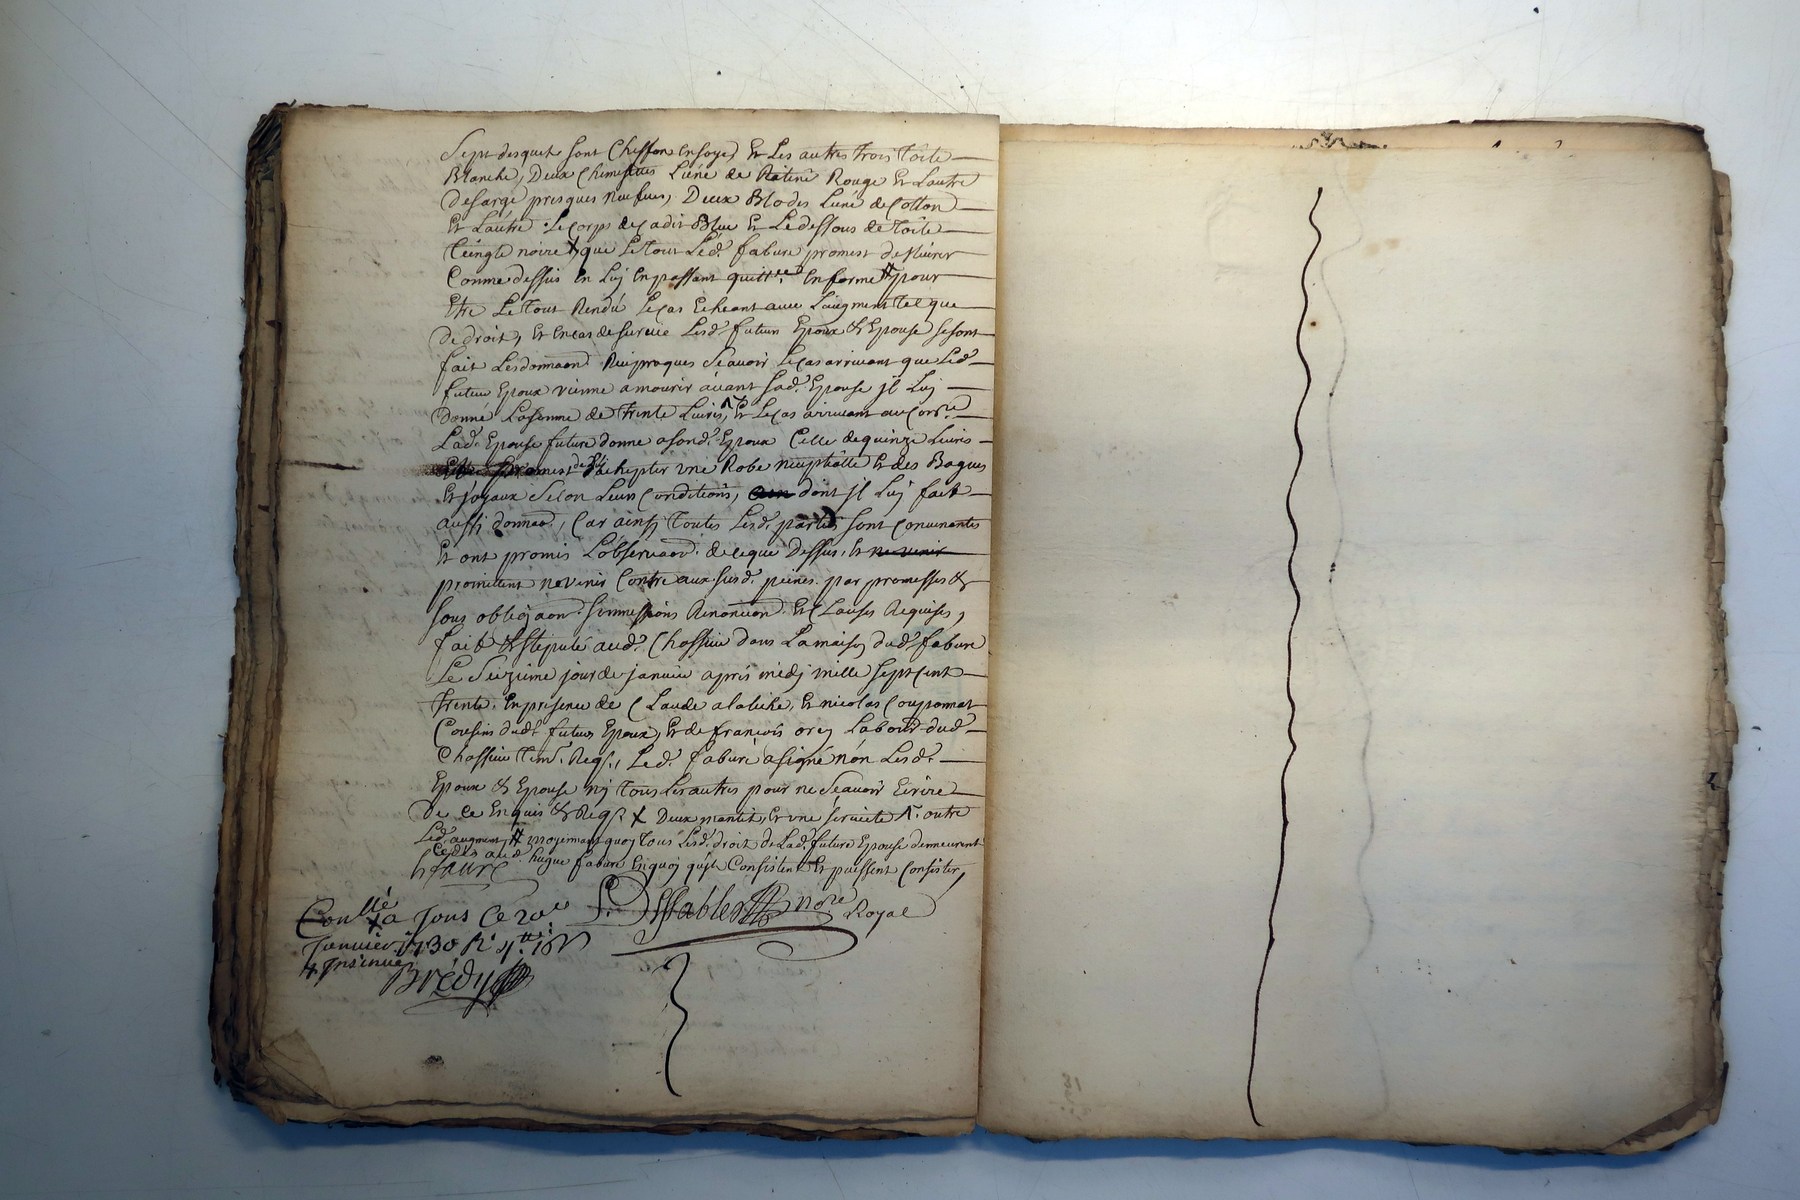 Sept desquels sont Chiffon en soye, Et Les autres trois Toile
Blanche, Deux Chemisettes L'une de Ratine Rouge Et Lautre
de sarge presques Neufves, Deux Blodes L'une de Cotton
Et L'autre Le corps de Cadis Bleu Et Le dessous de Toile
teingte noire X que Le tout Led. fabure promest deslivrer
Comme dessus En Luy En passant quittce En forme # pour
Etre Le tout Rendu Le cas Echeant avec L'augment tel que
de droit, Et En cas de survie Lesd. futurs Epoux & Epouse se sont
fait Les donnaons Reciproques Scavoir Le cas arrivant que Led.
futeur Epoux vienne a mourir avant Sad. Epouse jl Luy
donne La somme de trente Livres, Et Le cas arrivant au Contre
Lad. Epouse future donne a sond. Epoux Celle de quinze Livres
promest d'achepter une Robe neuptialle Et des Bagues
Et joyaux Selon Leurs Conditions, dont jl Luy fait
aussi donnaon, Car ainsy toutes Lesd. parties sont Convenantes
Et ont promis L'observaon de ce que Dessus, Et ne venir
promettent ne venir Contre aux susd. peines par promesses &
sous obligaon submissions Renonciaon Et Clauses Requises,
fait & Stipulé aud. Chassein dans La maison dud. fabure
Le Seizieme jour de janvier apres midj mille sept Cent
trente En presence de Claude Et nicolas
Cousins dud. futeur Epoux, Et de francois Labour dud.
Chassein tem. Reqs., Led. fabure a signé non Lesd.
Epoux & Epouse nj tous Les autres pour ne Scavoir Ecrire
De ce Enquis & Reqs X Deux mantils, Et une serviette outre
Led. augment, # moyennant quoy tous Lesd. droit de Lad. future Epouse demeurent
cedés aud. hugue fabure En quoy qu'jls Consistent Et puissent Consister,
h faure
nore Royal
Conllé a Ce 20e
Janvier 1730 R.
& Insinué